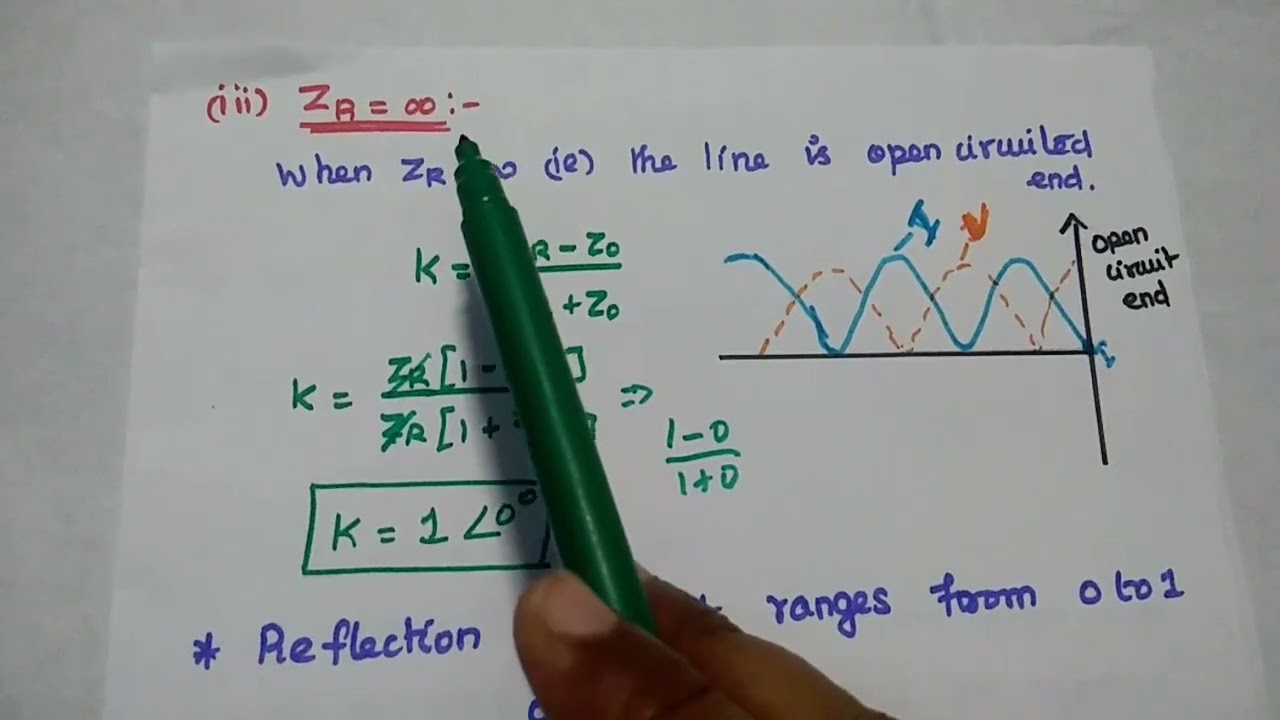 (iii) ZR = ∞ :-
When ZR (ie) the line is open circuited
end.
K = R - Z0
+ Z0
K = ZR [1 - ]
ZR [1 + ]
⇒ 1 - 0
1 + 0
K = 1 ∠0°
I V
open
circuit
end
* Reflection ranges from 0 to 1